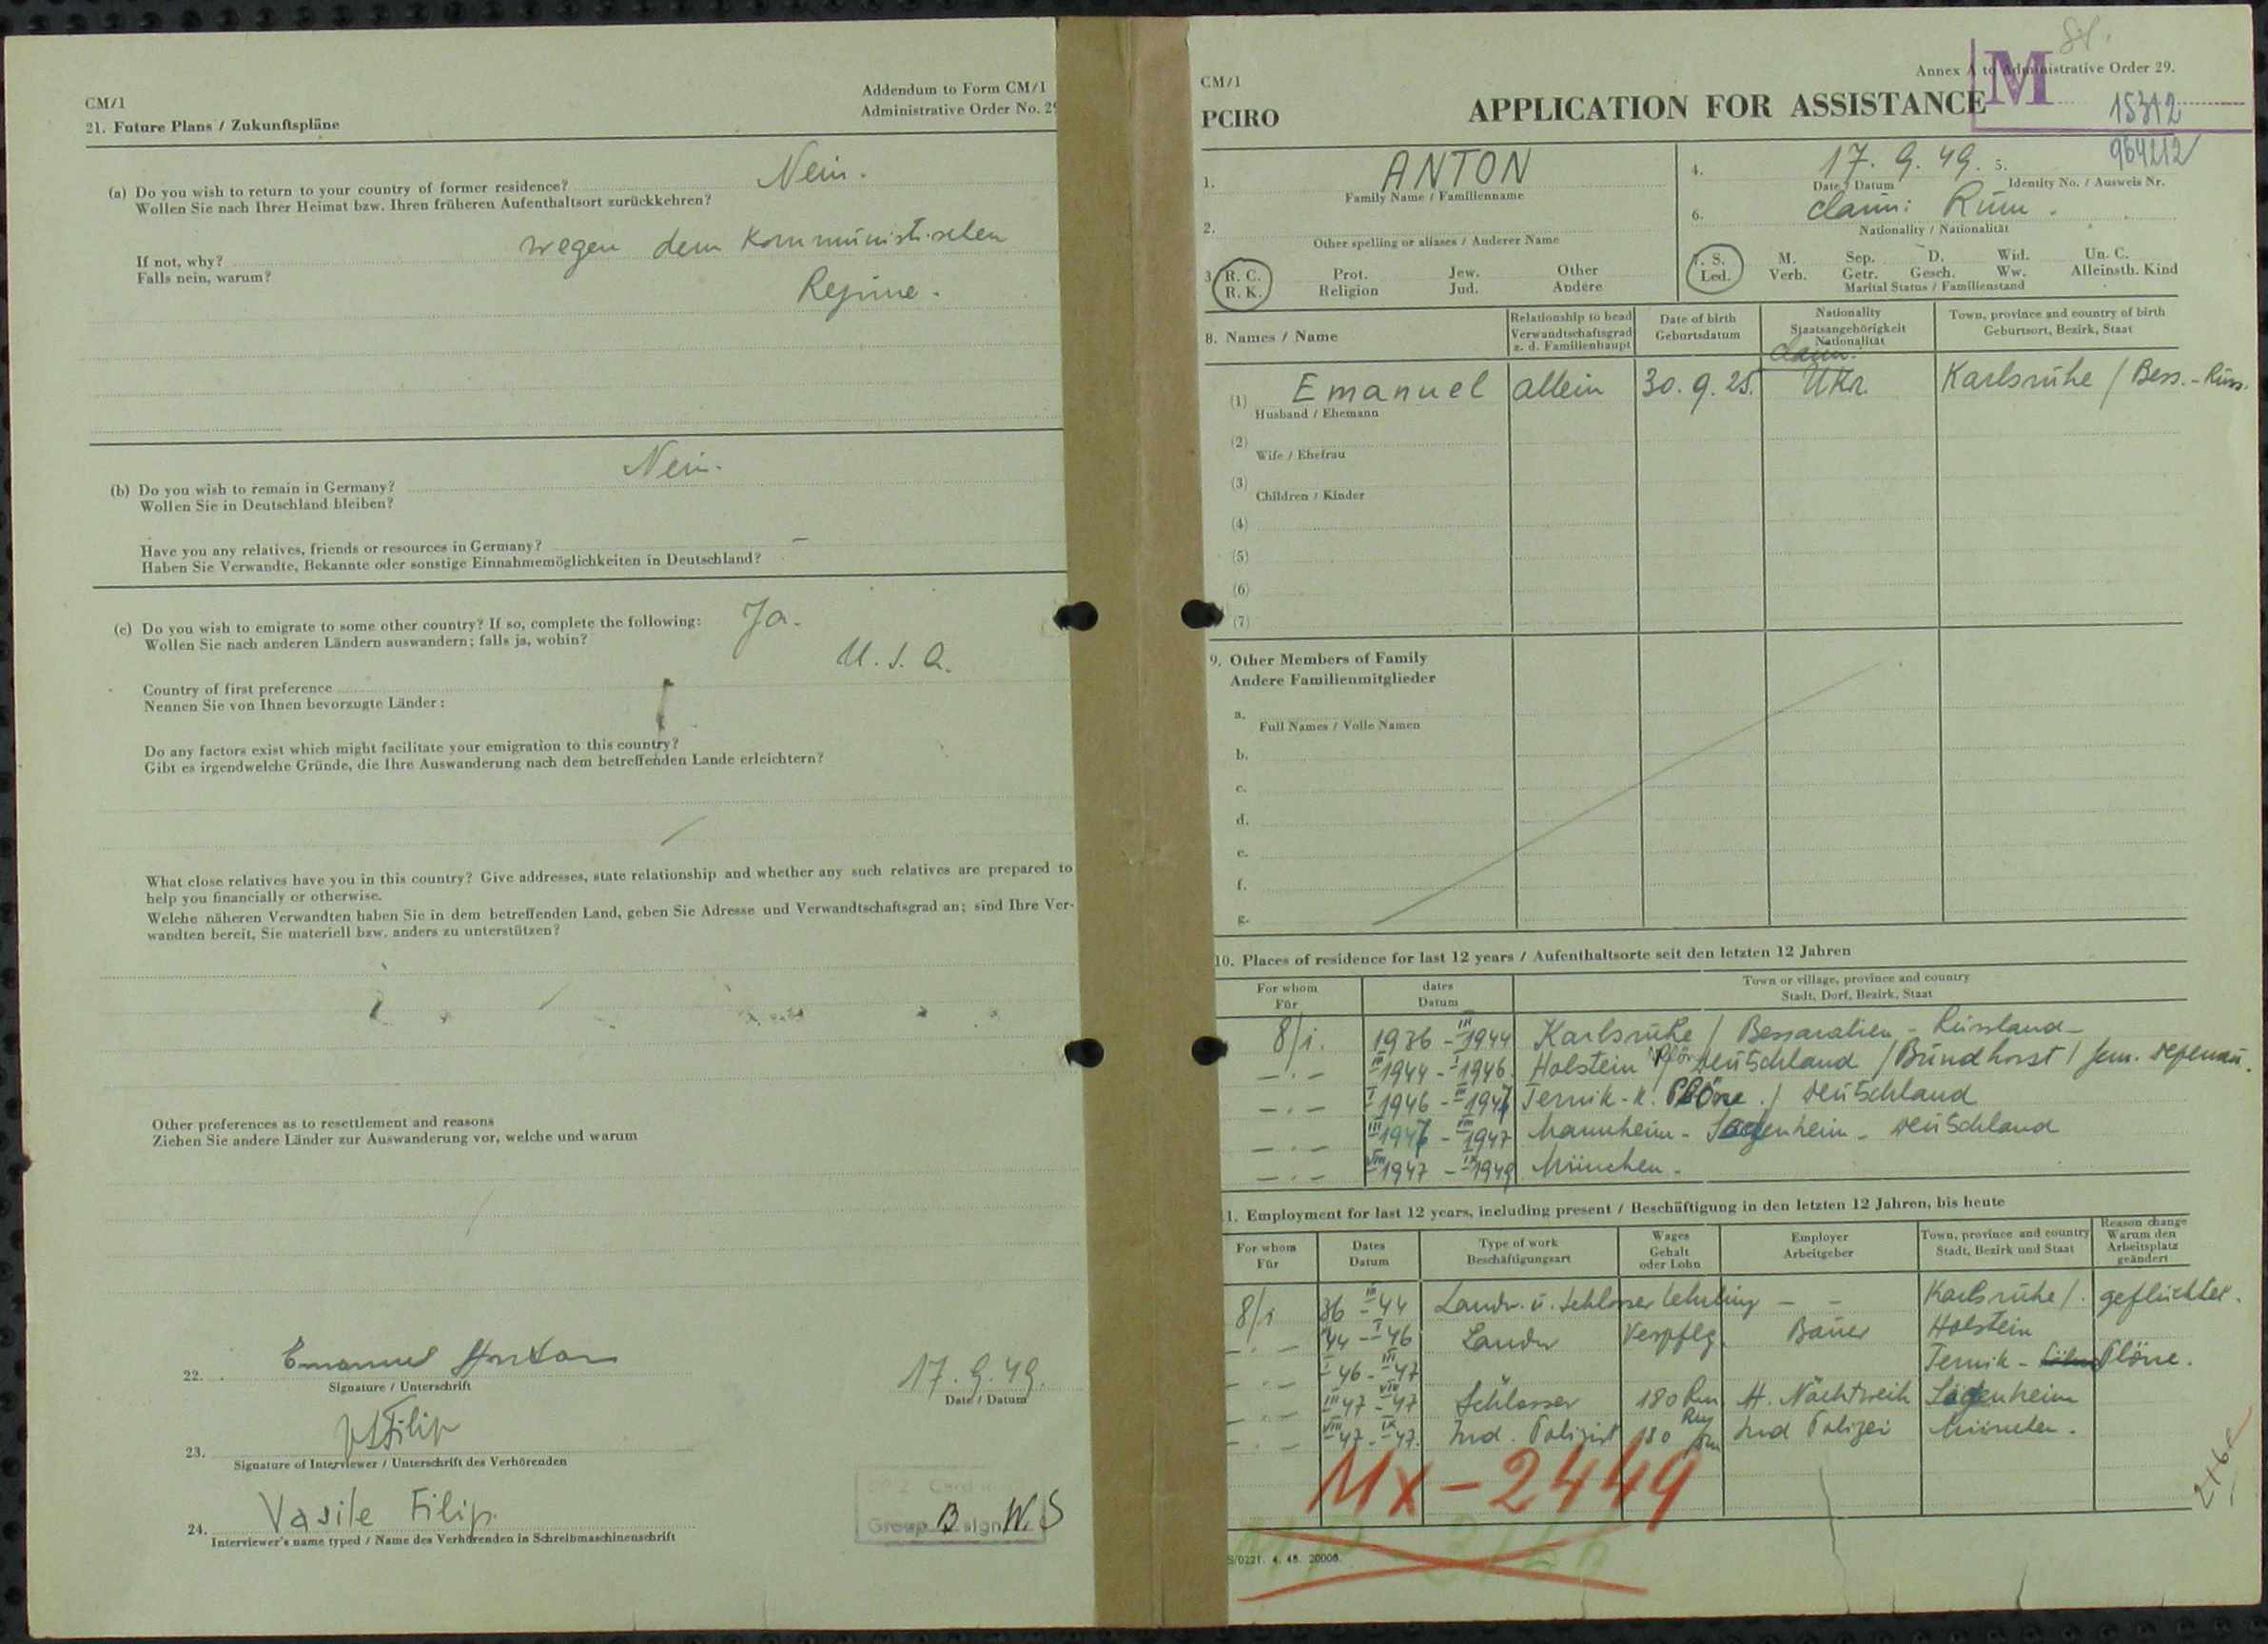 CM/1
Addendum to Form CM/1
Administrative Order No. 29
21. Future Plans / Zukunftspläne
(a) Do you wish to return to your country of former residence? Nein.
Wollen Sie nach Ihrer Heimat bzw. Ihren früheren Aufenthaltsort zurückkehren?
If not, why? wegen dem Kommunistischen
Falls nein, warum?
Regime.
(b) Do you wish to remain in Germany? Nein.
Wollen Sie in Deutschland bleiben?
Have you any relatives, friends or resources in Germany? –
Haben Sie Verwandte, Bekannte oder sonstige Einnahmemöglichkeiten in Deutschland?
(c) Do you wish to emigrate to some other country? If so, complete the following: Ja.
Wollen Sie nach anderen Ländern auswandern; falls ja, wohin?
U.S.A.
Country of first preference
Nennen Sie von Ihnen bevorzugte Länder:
Do any factors exist which might facilitate your emigration to this country?
Gibt es irgendwelche Gründe, die Ihre Auswanderung nach dem betreffenden Lande erleichtern?
What close relatives have you in this country? Give addresses, state relationship and whether any such relatives are prepared to
help you financially or otherwise.
Welche näheren Verwandten haben Sie in dem betreffenden Land, geben Sie Adresse und Verwandtschaftsgrad an; sind Ihre Ver-
wandten bereit, Sie materiell bzw. anders zu unterstützen?
Other preferences as to resettlement and reasons
Ziehen Sie andere Länder zur Auswanderung vor, welche und warum
22. Emanuel Anton 17.9.49.
Signature / Unterschrift Date / Datum
VFilip
23. Signature of Interviewer / Unterschrift des Verhörenden
24. Vasile Filip.
Interviewer's name typed / Name des Verhörenden in Schreibmaschinenschrift
Group B sign W.S
CM/1
Annex A to Administrative Order 29.
M
PCIRO
APPLICATION FOR ASSISTANCE
15312
964212
1. ANTON
Family Name / Familienname
4. 17.9.49.
Date / Datum
5. Identity No. / Ausweis Nr.
2. Other spelling or aliases / Anderer Name
6. claim: Rum.
Nationality / Nationalität
3. R. C. Prot. Jew. Other
R. K. Religion Jud. Andere
7. S. M. Sep. D. Wid. Un. C.
Led. Verh. Getr. Gesch. Ww. Alleinsth. Kind
Marital Status / Familienstand
8. Names / Name
Relationship to head
Verwandtschaftsgrad
z. d. Familienhaupt
Date of birth
Geburtsdatum
Nationality
Staatsangehörigkeit
Nationalität
Town, province and country of birth
Geburtsort, Bezirk, Staat
claim.
(1) Emanuel allein 30.9.25. Ukr. Karlsruhe / Bess. - Russ.
Husband / Ehemann
(2)
Wife / Ehefrau
(3)
Children / Kinder
(4)
(5)
(6)
(7)
9. Other Members of Family
Andere Familienmitglieder
a.
Full Names / Volle Namen
b.
c.
d.
e.
f.
g.
10. Places of residence for last 12 years / Aufenthaltsorte seit den letzten 12 Jahren
For whom
Für
dates
Datum
Town or village, province and country
Stadt, Dorf, Bezirk, Staat
8/1. 1936 - III 1944 Karlsruhe / Bessarabien - Russland -
-.- III 1944 - I 1946. Holstein Deutschland / Bundhorst /
-.- I 1946 - III 1947 Ternik - K. Plöne / Deutschland
-.- III 1947 - VIII 1947 Mannheim - Deutschland
-.- VIII 1947 - IX 1949 München.
11. Employment for last 12 years, including present / Beschäftigung in den letzten 12 Jahren, bis heute
For whom
Für
Dates
Datum
Type of work
Beschäftigungsart
Wages
Gehalt
oder Lohn
Employer
Arbeitgeber
Town, province and country
Stadt, Bezirk und Staat
Reason change
Warum den
Arbeitsplatz
geändert
8/1 36 - III 44 Landw. u. Schlosser Lehrling - - Karlsruhe /. geflüchtet.
-.- 44 - I 46 Landw Verpflg. Bauer Holstein
-.- I 46 - III 47 Ternik - Plöne.
-.- III 47 - VIII 47 Schlosser 180 Rm H. Nachtweih
-.- VIII 47 - IX 47. Ind. Polizist 180 Rm Ind Polizei München.
Mx - 2449
S/0221. 4. 48. 20000.